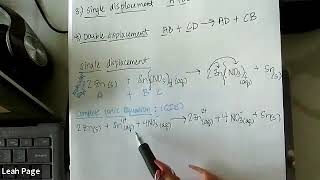 2) Single displacement
→) Double displacement AB + CD → AD + CB
Single displacement
2 Zn(s) + Sn(NO₃)₄(aq) → (Zn²⁺(NO₃)₂)(aq) + Sn(s)
A B C
Complete Ionic Equation : (CIE)
2 Zn(s) + Sn⁴⁺(aq) + 4NO₃⁻(aq) → 2 Zn²⁺(aq) + 4 NO₃⁻(aq) + Sn(s)
Leah Page